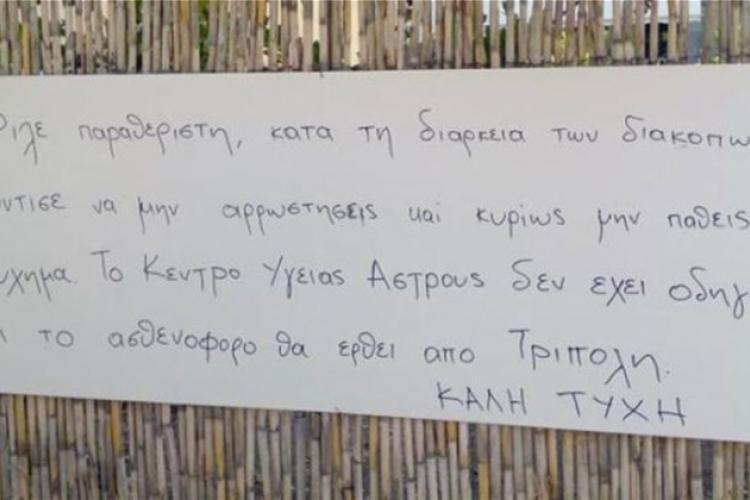 φιλε παραθεριστη, κατα τη διαρκεια των διακοπω
ντισε να μην αρρωστησεις και κυριως μην παθεις
υχημα. Το Κεντρο Υγειας Αστρους δεν εχει οδηγ
το ασθενοφορο θα ερθει απο Τριπολη.
ΚΑΛΗ ΤΥΧΗ